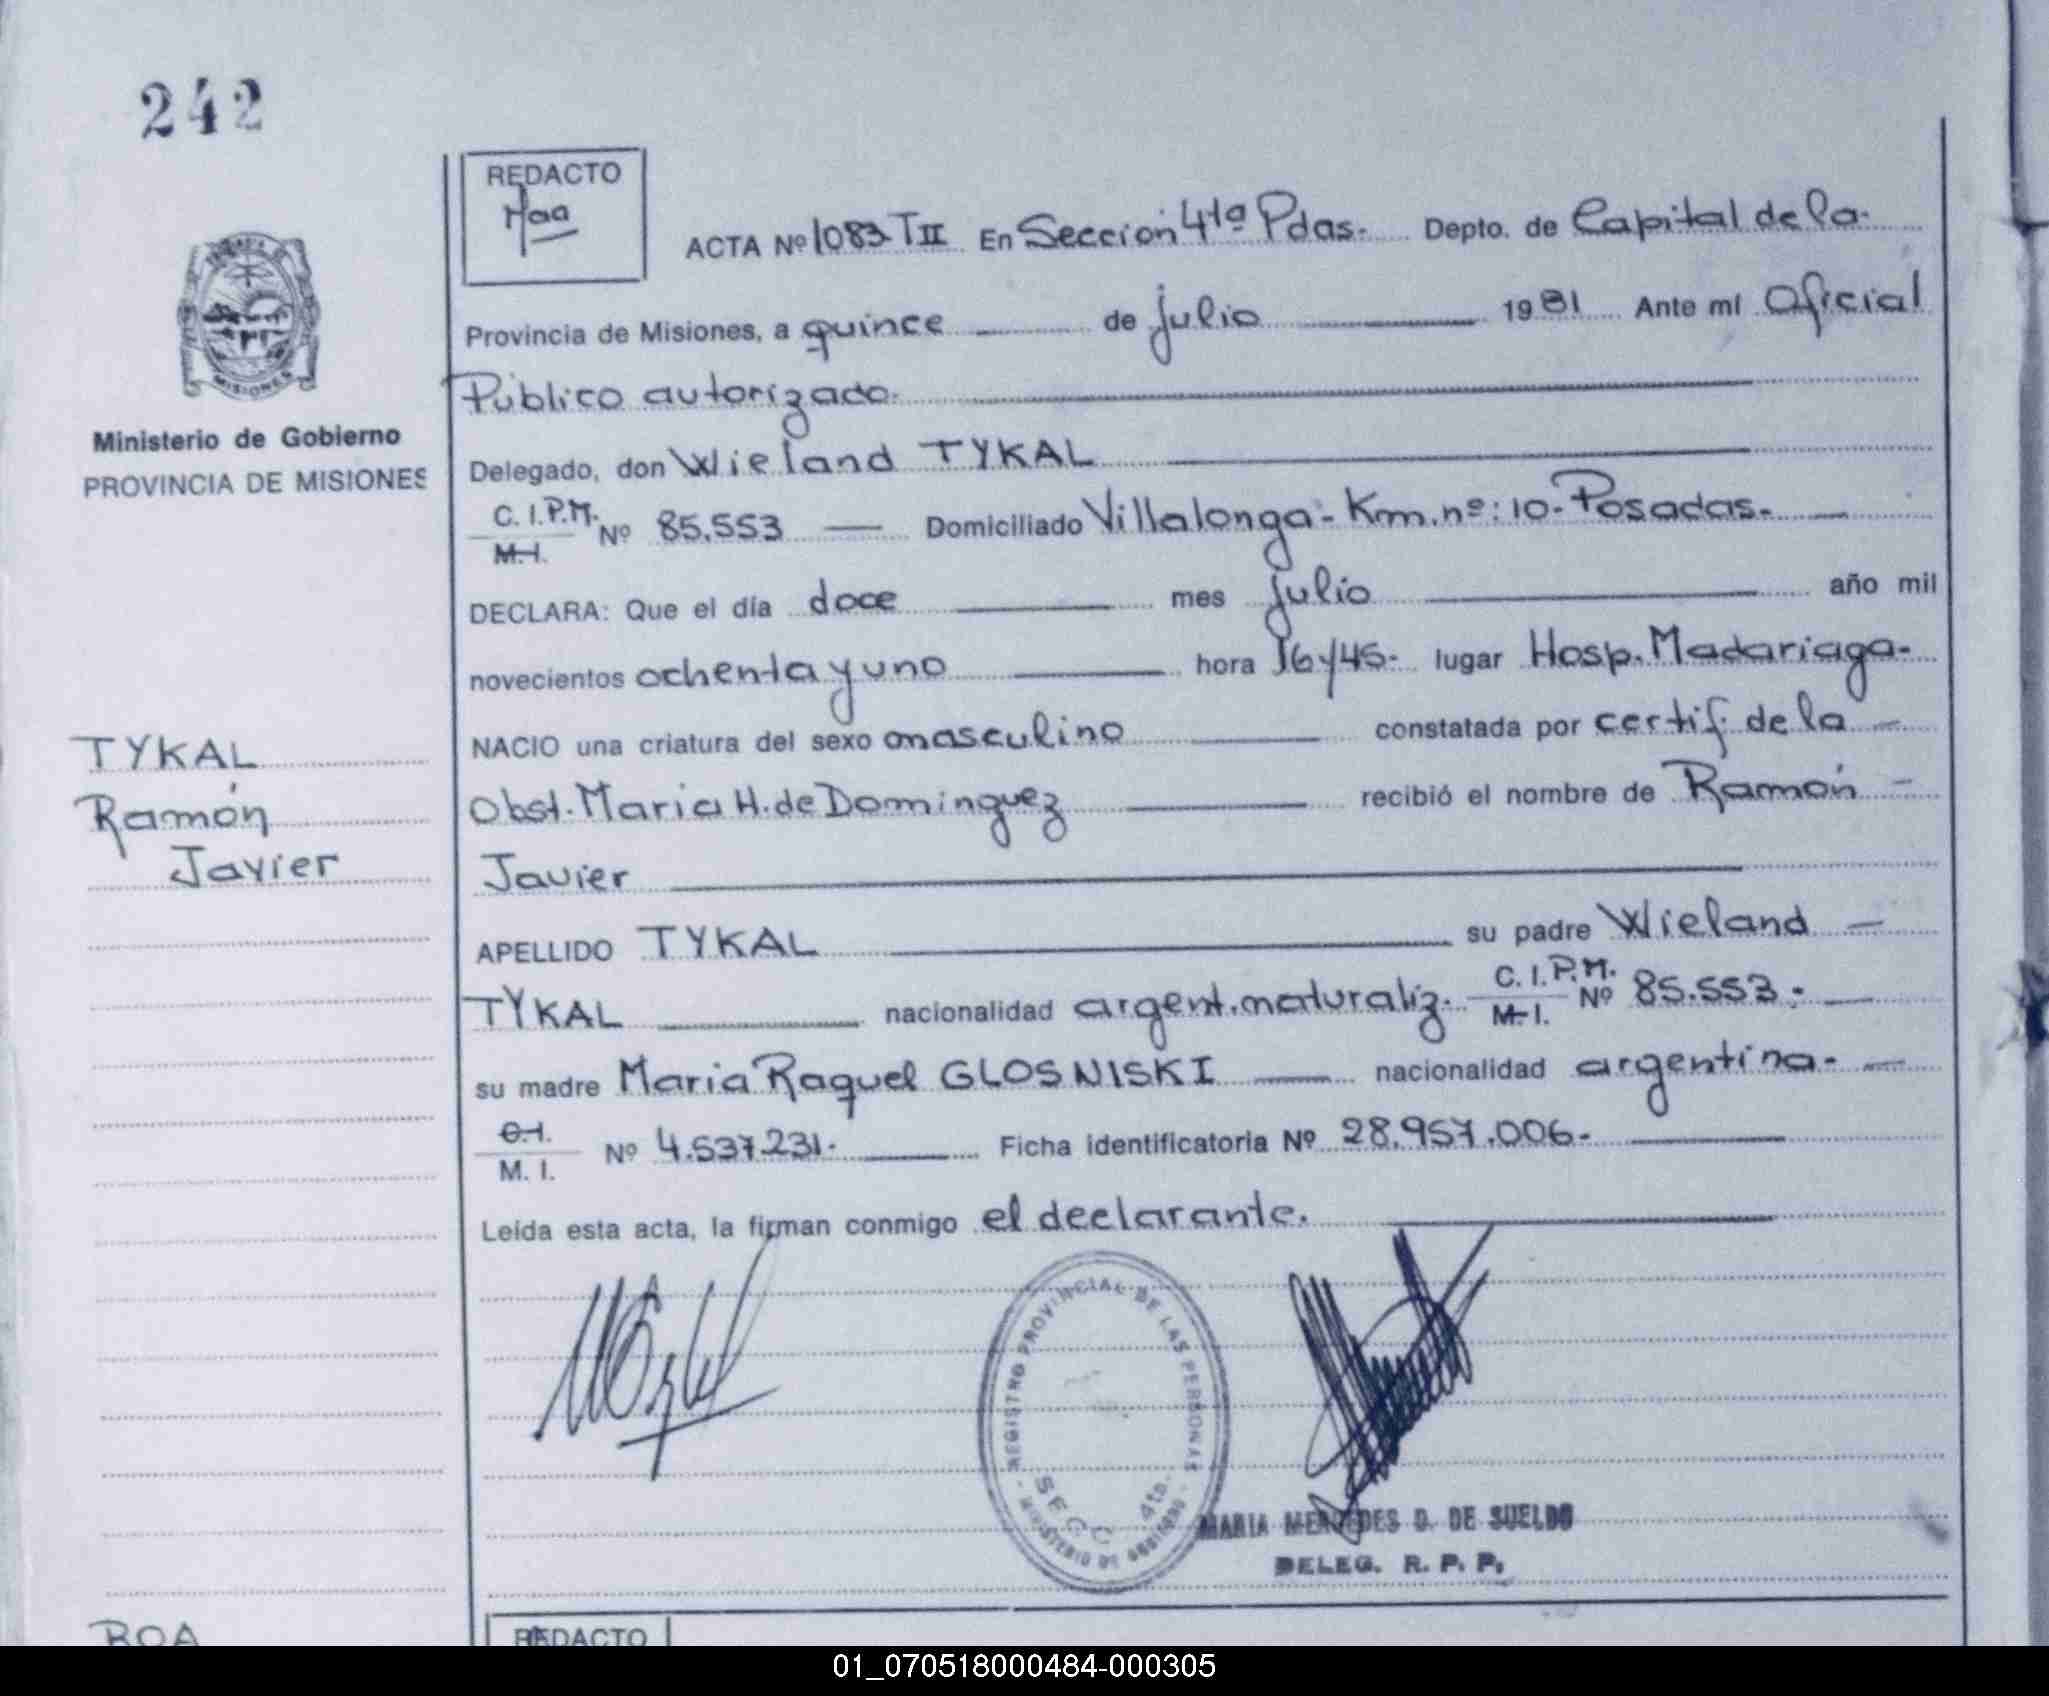 242
REDACTO
ACTA Nº 1083 T II En Sección 4ta Pdas. Depto. de Capital de la
MISIONES
Provincia de Misiones, a quince de julio 1981 Ante mí Oficial
Público autorizado.
Ministerio de Gobierno
PROVINCIA DE MISIONES
Delegado, don Wieland TYKAL
C. I. P.M. M. I. Nº 85.553 Domiciliado Villalonga - Km. nº: 10 - Posadas.
DECLARA: Que el día doce mes julio año mil
novecientos ochenta y uno hora 16 y 45 - lugar Hosp. Madariaga -
NACIO una criatura del sexo masculino constatada por certif. de la
TYKAL
Ramón
Javier
Obst. Maria H. de Dominguez recibió el nombre de Ramón
Javier
APELLIDO TYKAL su padre Wieland
TYKAL nacionalidad argent. naturaliz. C. I. P.M. M. I. Nº 85.553.
su madre Maria Raquel GLOSNISKI nacionalidad argentina -
C. I. M. I. Nº 4.537.231. Ficha identificatoria Nº 28.957.006 -
Leída esta acta, la firman conmigo el declarante.
REGISTRO PROVINCIAL DE LAS PERSONAS
SECC 4ta.
MINISTERIO DE GOBIERNO
MARIA MERCEDES D. DE SUELDO
DELEG. R. P. P.
BOA
REDACTO
01_070518000484-000305